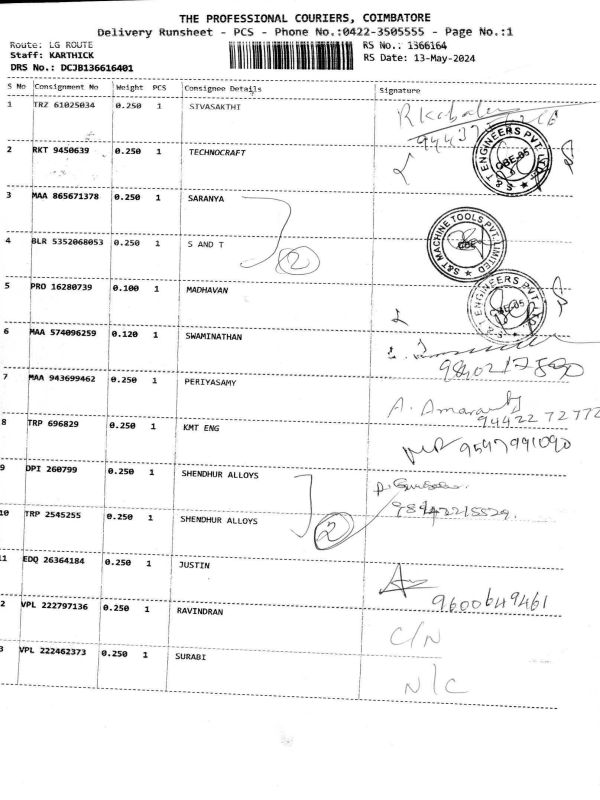 THE PROFESSIONAL COURIERS, COIMBATORE
Delivery Runsheet - PCS - Phone No.:0422-3505555 - Page No.:1
Route: LG ROUTE
Staff: KARTHICK
DRS No.: DCJB136616401
RS No.: 1366164
RS Date: 13-May-2024
S No Consignment No Weight PCS Consignee Details Signature
1 TRZ 61025034 0.250 1 SIVASAKTHI
2 RKT 9450639 0.250 1 TECHNOCRAFT
S & T ENGINEERS PVT. LTD. CBE-05
3 MAA 865671378 0.250 1 SARANYA
4 BLR 5352068053 0.250 1 S AND T
2
S&T MACHINE TOOLS PVT. LIMITED CBE
5 PRO 16280739 0.100 1 MADHAVAN
S & T ENGINEERS PVT. LTD. CBE-05
6 MAA 574096259 0.120 1 SWAMINATHAN
7 MAA 943699462 0.250 1 PERIYASAMY
A.
94422 72772
8 TRP 696829 0.250 1 KMT ENG
9547991090
9 DPI 260799 0.250 1 SHENDHUR ALLOYS
10 TRP 2545255 0.250 1 SHENDHUR ALLOYS
2
11 EDQ 26364184 0.250 1 JUSTIN
9600649461
2 VPL 222797136 0.250 1 RAVINDRAN
C/N
3 VPL 222462373 0.250 1 SURABI
N/C